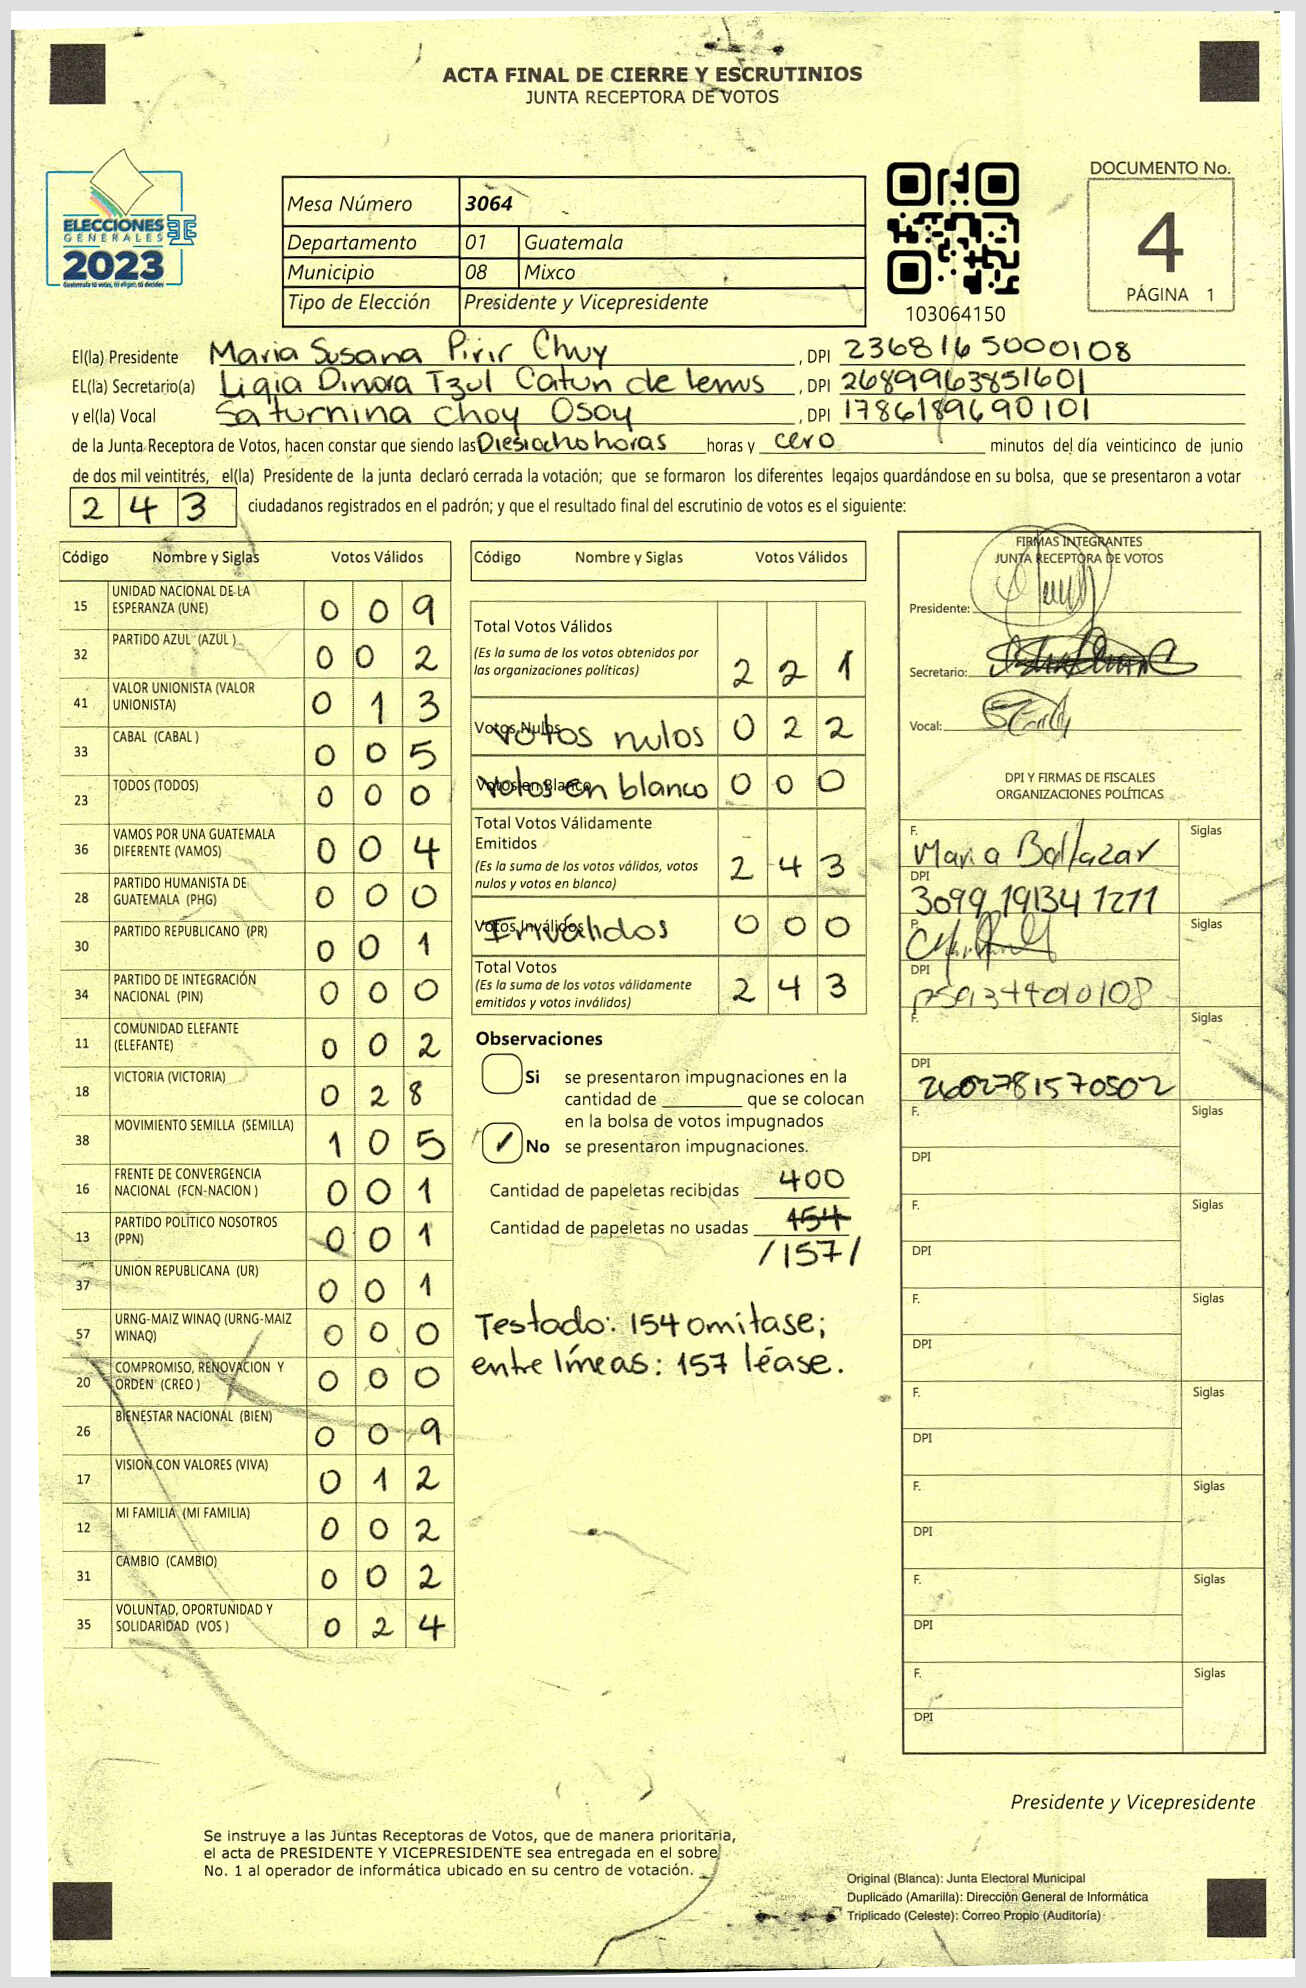 ACTA FINAL DE CIERRE Y ESCRUTINIOS
JUNTA RECEPTORA DE VOTOS
ELECCIONES
GENERALES
2023
Guatemala tú votas, tú eliges, tú decides
Mesa Número 3064
Departamento 01 Guatemala
Municipio 08 Mixco
Tipo de Elección Presidente y Vicepresidente
103064150
DOCUMENTO No.
4
PÁGINA 1
El(la) Presidente Maria Susana Pirir Chuy, DPI 2368165000108
EL(la) Secretario(a) Ligia Dinora Tzul Catun de lemus, DPI 2689963851601
y el(la) Vocal Saturnina choy Osoy, DPI 1786189690101
de la Junta Receptora de Votos, hacen constar que siendo las Diesiocho horas horas y cero minutos del día veinticinco de junio
de dos mil veintitrés, el(la) Presidente de la junta declaró cerrada la votación; que se formaron los diferentes legajos guardándose en su bolsa, que se presentaron a votar
243 ciudadanos registrados en el padrón; y que el resultado final del escrutinio de votos es el siguiente:
Código Nombre y Siglas Votos Válidos
15 UNIDAD NACIONAL DE LA ESPERANZA (UNE) 0 0 9
32 PARTIDO AZUL (AZUL ) 0 0 2
41 VALOR UNIONISTA (VALOR UNIONISTA) 0 1 3
33 CABAL (CABAL ) 0 0 5
23 TODOS (TODOS) 0 0 0
36 VAMOS POR UNA GUATEMALA DIFERENTE (VAMOS) 0 0 4
28 PARTIDO HUMANISTA DE GUATEMALA (PHG) 0 0 0
30 PARTIDO REPUBLICANO (PR) 0 0 1
34 PARTIDO DE INTEGRACIÓN NACIONAL (PIN) 0 0 0
11 COMUNIDAD ELEFANTE (ELEFANTE) 0 0 2
18 VICTORIA (VICTORIA) 0 2 8
38 MOVIMIENTO SEMILLA (SEMILLA) 1 0 5
16 FRENTE DE CONVERGENCIA NACIONAL (FCN-NACION ) 0 0 1
13 PARTIDO POLÍTICO NOSOTROS (PPN) 0 0 1
37 UNION REPUBLICANA (UR) 0 0 1
57 URNG-MAIZ WINAQ (URNG-MAIZ WINAQ) 0 0 0
20 COMPROMISO, RENOVACION Y ORDEN (CREO ) 0 0 0
26 BIENESTAR NACIONAL (BIEN) 0 0 9
17 VISION CON VALORES (VIVA) 0 1 2
12 MI FAMILIA (MI FAMILIA) 0 0 2
31 CAMBIO (CAMBIO) 0 0 2
35 VOLUNTAD, OPORTUNIDAD Y SOLIDARIDAD (VOS ) 0 2 4
Código Nombre y Siglas Votos Válidos
Total Votos Válidos
(Es la suma de los votos obtenidos por
las organizaciones políticas) 2 2 1
Votos Nulos votos nulos 0 2 2
Votos en Blanco Votos en blanco 0 0 0
Total Votos Válidamente
Emitidos
(Es la suma de los votos válidos, votos
nulos y votos en blanco) 2 4 3
Votos Inválidos Inválidos 0 0 0
Total Votos
(Es la suma de los votos válidamente
emitidos y votos inválidos) 2 4 3
Observaciones
Si se presentaron impugnaciones en la
cantidad de ________ que se colocan
en la bolsa de votos impugnados
✓ No se presentaron impugnaciones.
Cantidad de papeletas recibidas 400
Cantidad de papeletas no usadas 154
/157/
Testado: 154 omitase;
entre líneas: 157 léase.
FIRMAS INTEGRANTES
JUNTA RECEPTORA DE VOTOS
Presidente:
Secretario:
Vocal:
DPI Y FIRMAS DE FISCALES
ORGANIZACIONES POLÍTICAS
F. Maria Baltazar Siglas
DPI 3099 19134 1211
F. Siglas
DPI
F. Siglas
DPI 2602781570502
F. Siglas
DPI
F. Siglas
DPI
F. Siglas
DPI
F. Siglas
DPI
F. Siglas
DPI
F. Siglas
DPI
F. Siglas
DPI
Presidente y Vicepresidente
Se instruye a las Juntas Receptoras de Votos, que de manera prioritaria,
el acta de PRESIDENTE Y VICEPRESIDENTE sea entregada en el sobre
No. 1 al operador de informática ubicado en su centro de votación.
Original (Blanca): Junta Electoral Municipal
Duplicado (Amarilla): Dirección General de Informática
Triplicado (Celeste): Correo Propio (Auditoría)